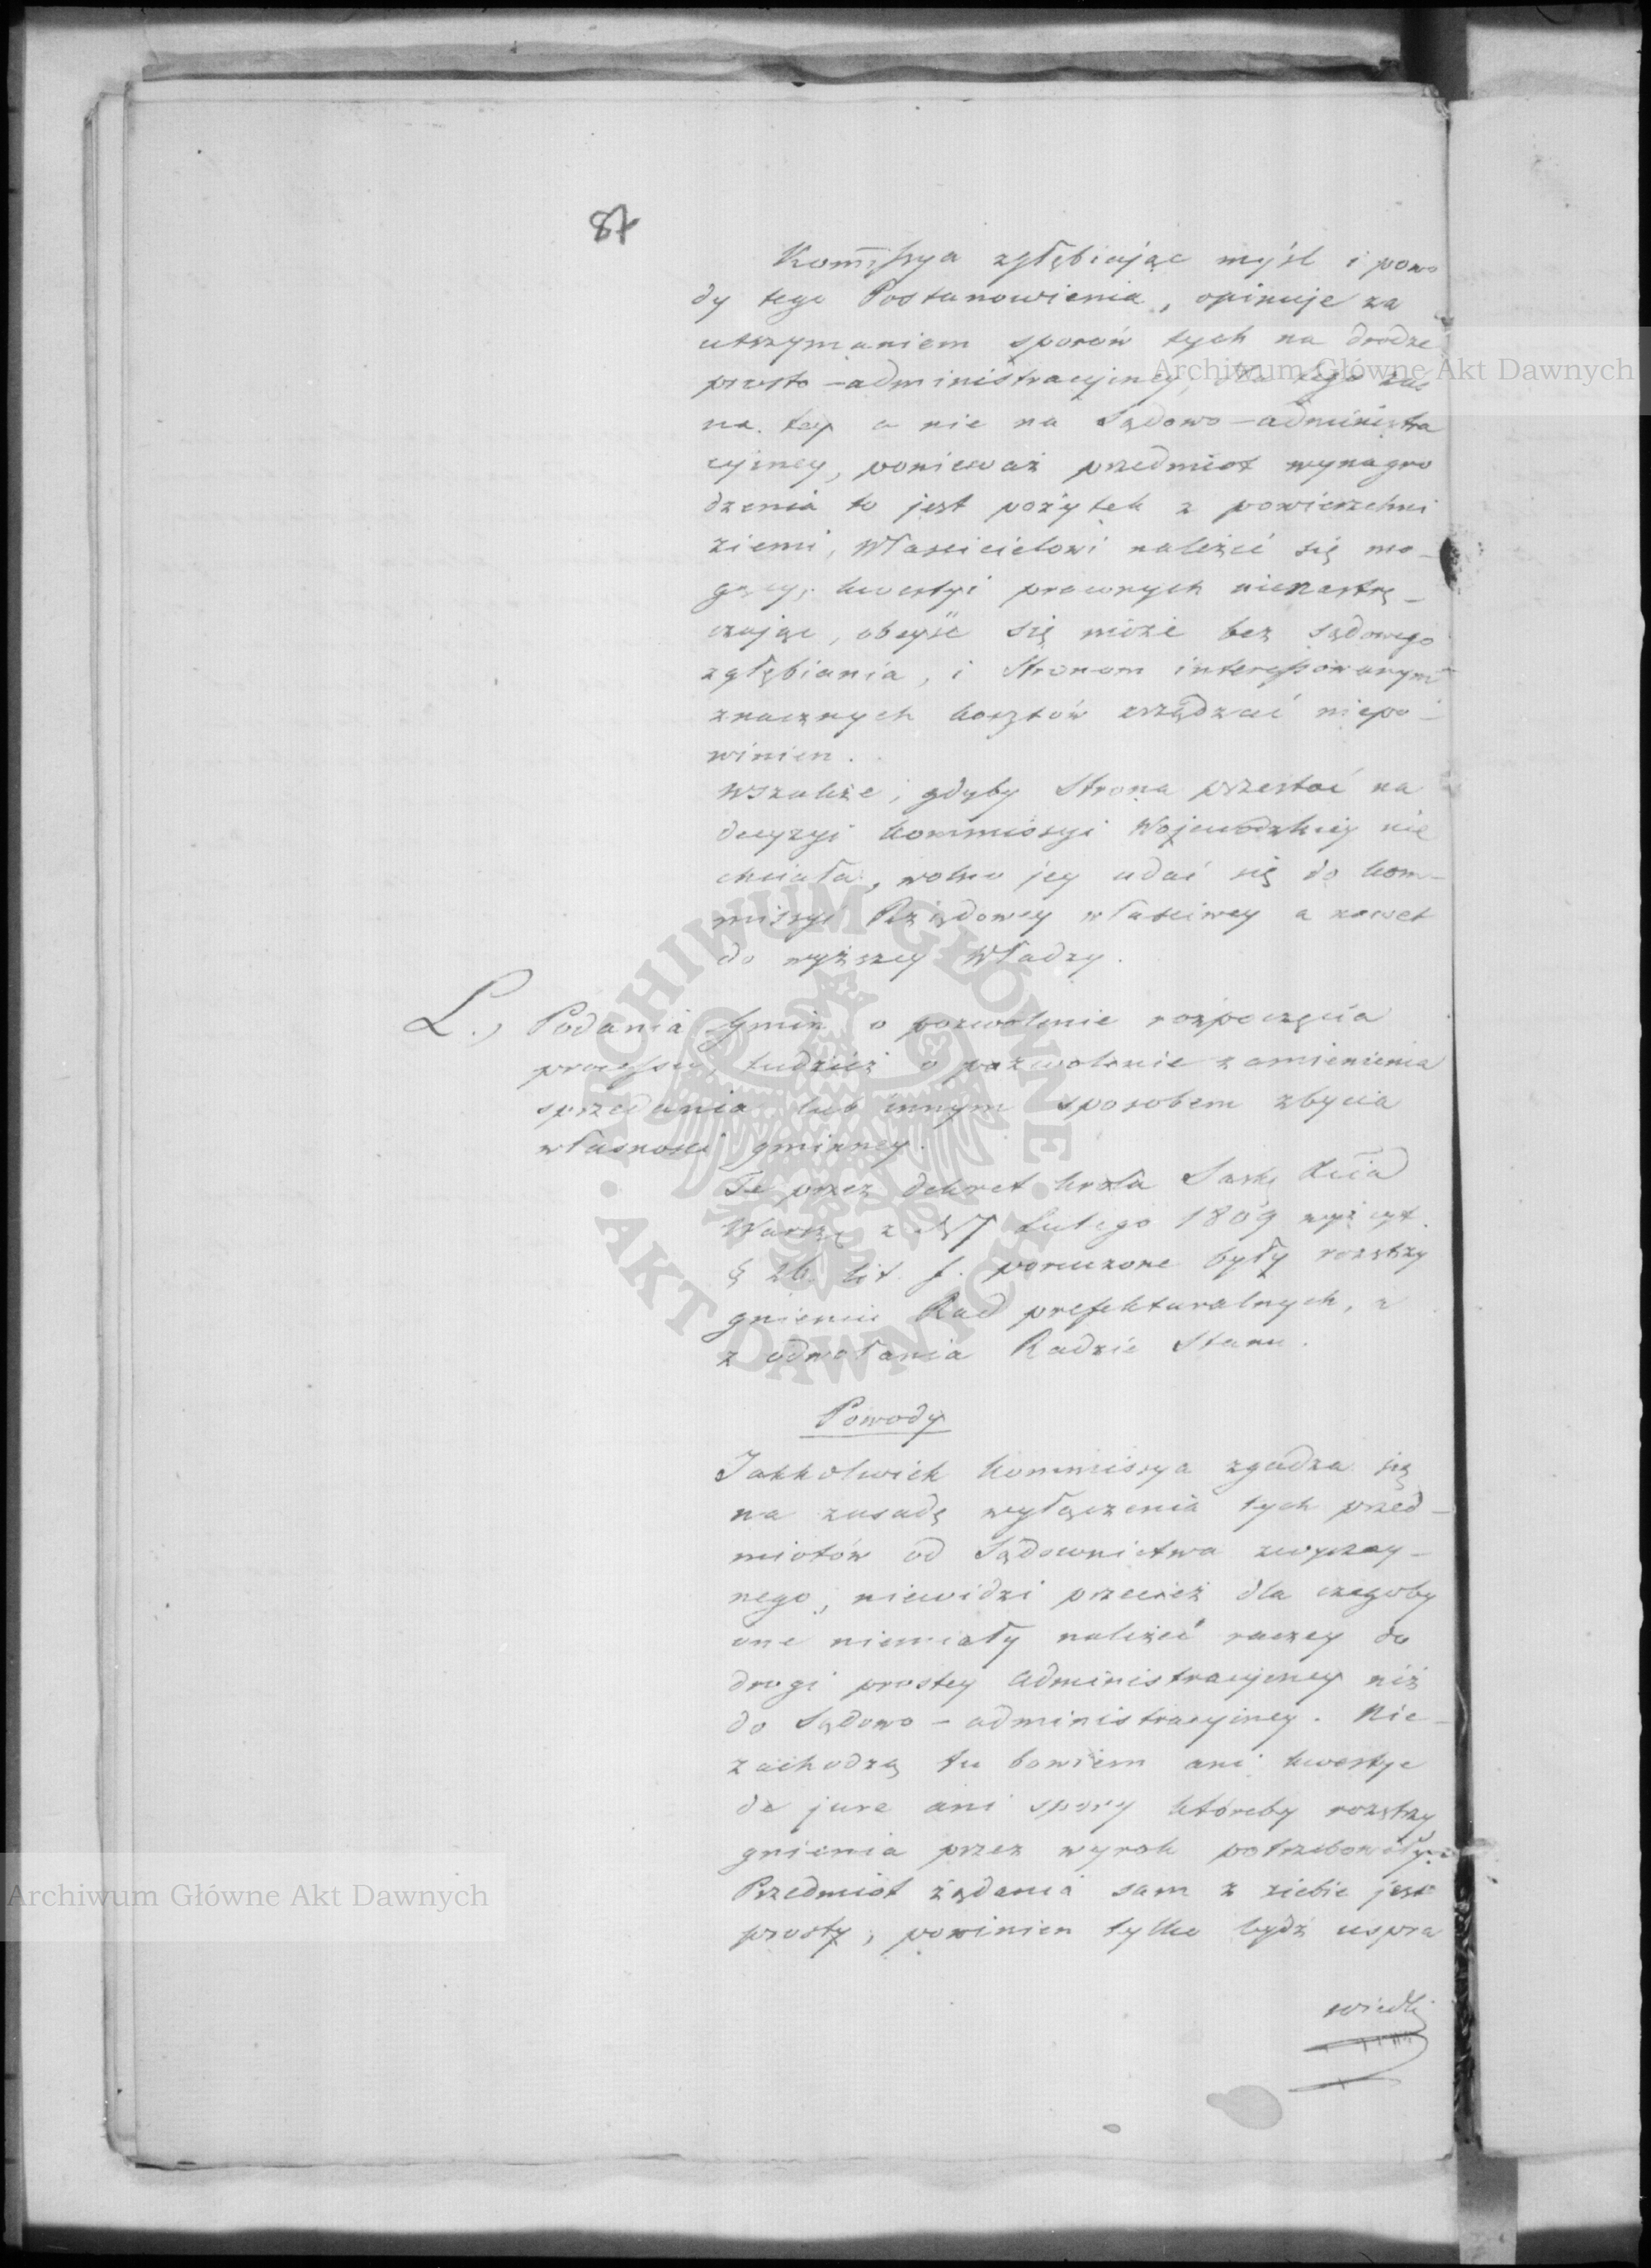 87
Kommissya zgłębiając myśl i powo
dy tego Postanowienia, opiniuje za
utrzymaniem sporów tych na drodze
prosto-administracyjney, dla tego zaś
na tey a nie na Sądowo-administra
cyjney, ponieważ przedmiot wynagro
dzenia to jest pożytek z powierzchni
ziemi, Właścicielowi należeć się mo-
gący, kwestyi prawnych nienastrę-
czając, obeyść się może bez sądowego
zgłębiania, i Stronom interessowanym
znacznych kosztów zrządzać niepo-
winien.
Wszakże, gdyby Strona przestać na
decyzyi Kommissyi Wojewódzkiey nie
chciała, wolno jey udać się do Kom-
missyi Rządowey właściwey a nawet
do wyższey Władzy.
L., Podania Gmin o pozwolenie rozpoczęcia
processu, tudzież o pozwolenie zamienienia
sprzedania lub innym sposobem zbycia
własności gminney.
Te przez dekret Króla Sask. Xcia
Warsz. z d. 7 Lutego 1809 wyż cyt.
§ 26. lit. f. poruczone były rozstrzy
gnieniu Rad prefekturalnych, a
z odwołania Radzie Stanu.
Powody
Jakkolwiek Kommissya zgadza się
na zasadę wyłączenia tych przed-
miotów od Sądownictwa zwyczay-
nego, niewidzi przecież dla czegoby
one niemiały należeć raczey do
drogi prostey administracyjney niż
do Sądowo-administracyjney. Nie-
zachodzą tu bowiem ani kwestye
de jure ani spory któreby rozstrzy
gnienia przez wyrok potrzebowały.
Przedmiot żądania sam z siebie jest
prosty, powinien tylko bydź uspra
wiedli
Archiwum Główne Akt Dawnych
Archiwum Główne Akt Dawnych
ARCHIWUM GŁÓWNE AKT DAWNYCH